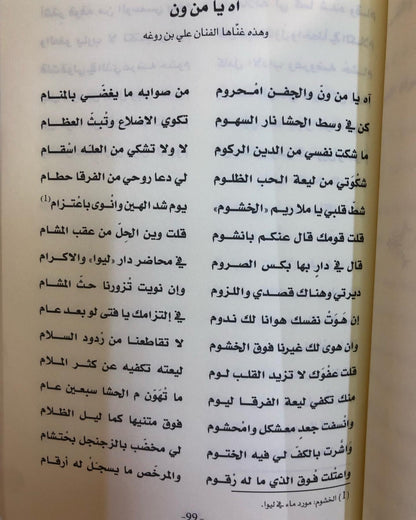 آه يا من ون
وهذه غنّاها الفنان علي بن روغه
آه يا من ونْ والجفن امْحروم من صوابه ما يغضّي بالمنام
كن في وسط الحشا نار السهوم تكوي الاضلاع وتُبث العظام
ما شكت نفسي من الدين الركوم لا ولا تشكي من العله اسْقام
شكْوَتي من ليعة الحب الظلوم لي دعا روحي من الفرقا حطام
شط قلبي يا ملا ريم «الخشوم» يوم شد الهين وانْوى باعْتزام(1)
قلت قومك قال عنكم بانْشوم قلت وين الحِلّ من عقب المشام
قال في دارٍ بها بكس الصروم في محاضر دار «ليوا» والاكرام
ديرتي وهناك قصدي واللزوم وإن نويت تْزورنا حثّ المشام
إن هَوَتْ نفسك هوانا لك ندوم في إلتزامك يا فتى لو بعد عام
وإن هوى لك غيرنا فوق الخشوم لا تقاطعنا من رْدود السلام
قلت عفْوك لا تزيد القلب لوم ليعته تكفيه عن كثر الملام
منك تكفي ليعة الفرقا ليوم ما تْهَوّن م الحشا سبعين عام
وانسفت جعدٍ معشكل وامْحشوم فوق متنيها كما ليل الظلام
وَاشّرت بالكف لي فيه الختوم لي مخضّب بالزجنجل بحْتشام
واعتلت فوق الذي ما له رْقوم والمرخّص ما يسجّل له أرقام
(1) الخشوم: مورد ماء في ليوا.
-99-